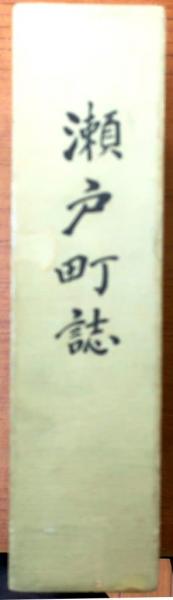 瀬戸町誌